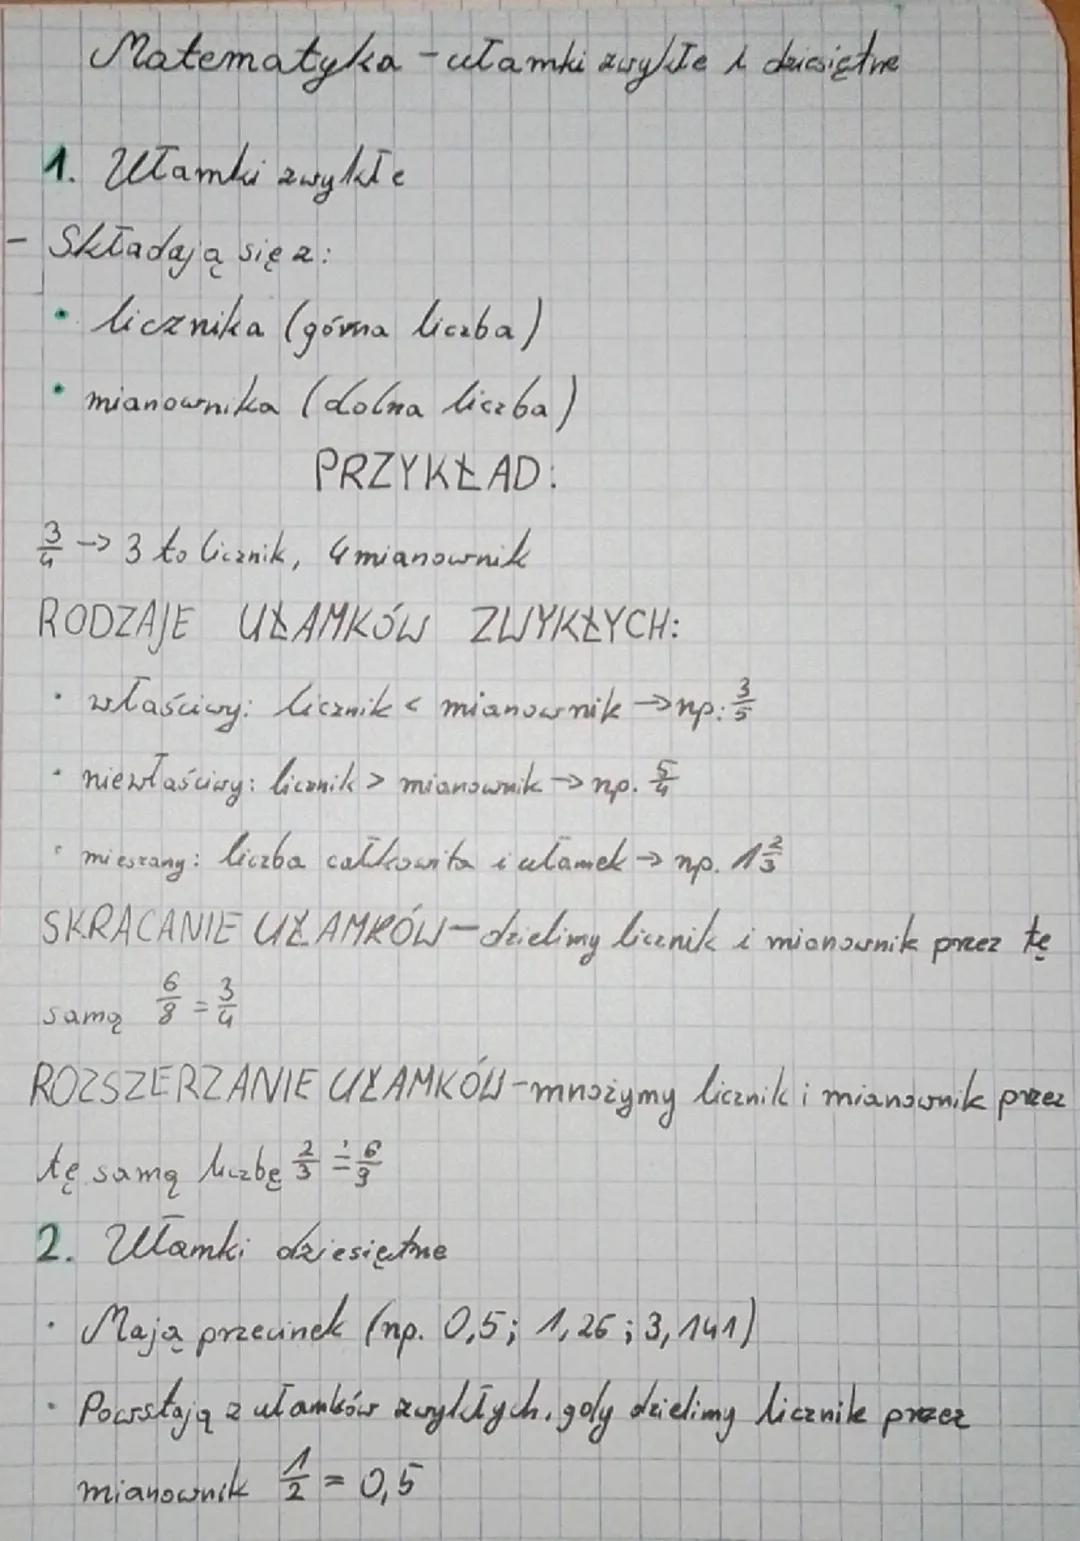 Matematyka - ułamki zwykłe i dziesiętne
1. Ułamki zwykłe
- Składają się z:
• licznika (górna liczba)
• mianownika (dolna liczba)
PRZYKŁAD:
3/4 -> 3 to licznik, 4 mianownik
RODZAJE UŁAMKÓW ZWYKŁYCH:
• właściwy: licznik < mianownik -> np: 3/5
• niewłaściwy: licznik > mianownik -> np. 5/4
• mieszany: liczba całkowita i ułamek -> np. 1 2/3
SKRACANIE UŁAMKÓW - dzielimy licznik i mianownik przez tę
samą 6/8 = 3/4
ROZSZERZANIE UŁAMKÓW - mnożymy licznik i mianownik przez
tę samą liczbę 2/3 = 6/9
2. Ułamki dziesiętne
• Mają przecinek (np. 0,5; 1,26; 3,141)
• Powstają z ułamków zwykłych, gdy dzielimy licznik przez
mianownik 1/2 = 0,5